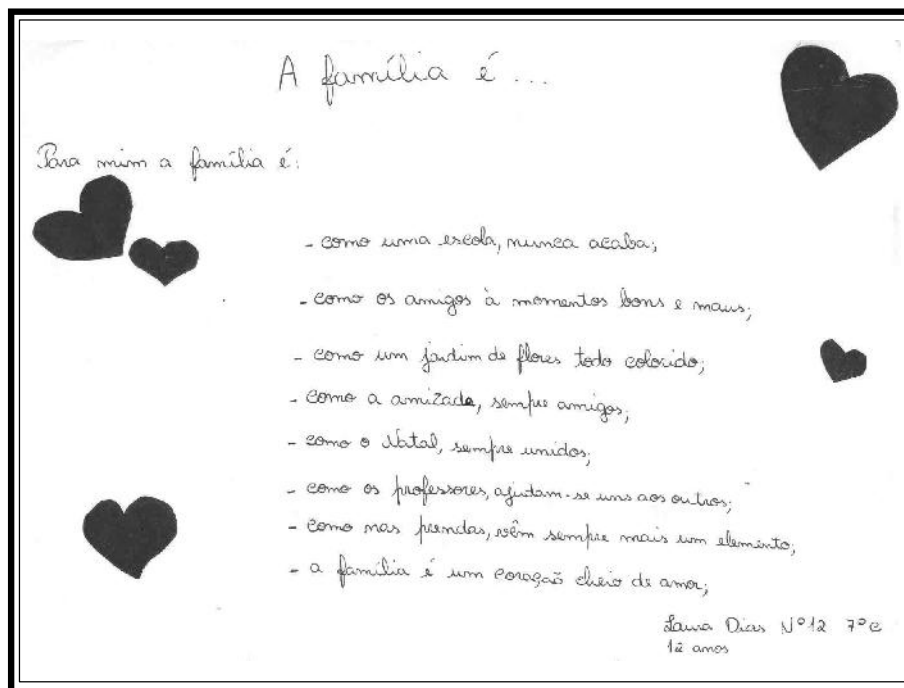 A família é...
Para mim a família é:
- como uma escola, nunca acaba;
- como os amigos à momentos bons e maus;
- como um jardim de flores todo colorido;
- como a amizade, sempre amigos;
- como o Natal, sempre unidos;
- como os professores, ajudam-se uns aos outros;
- como nas prendas, vêm sempre mais um elemento;
- a família é um coração cheio de amor;
Laura Dias Nº12 7ºC
12 anos